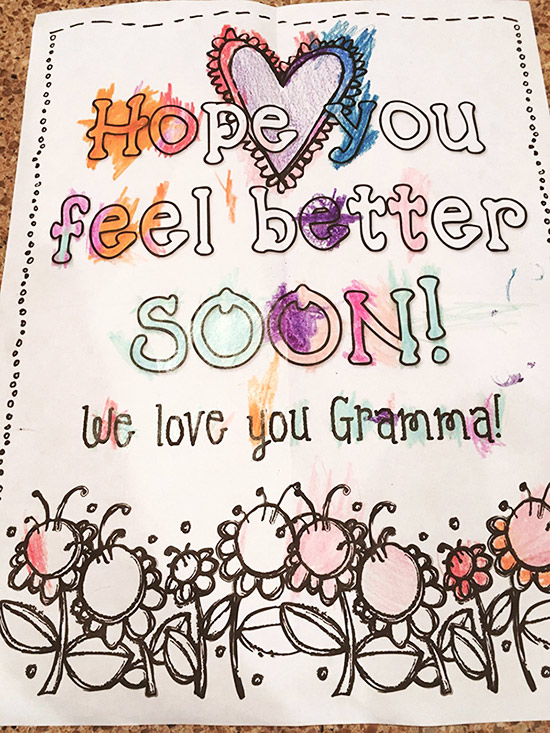 Hope you
feel better
SOON!
We love you Gramma!